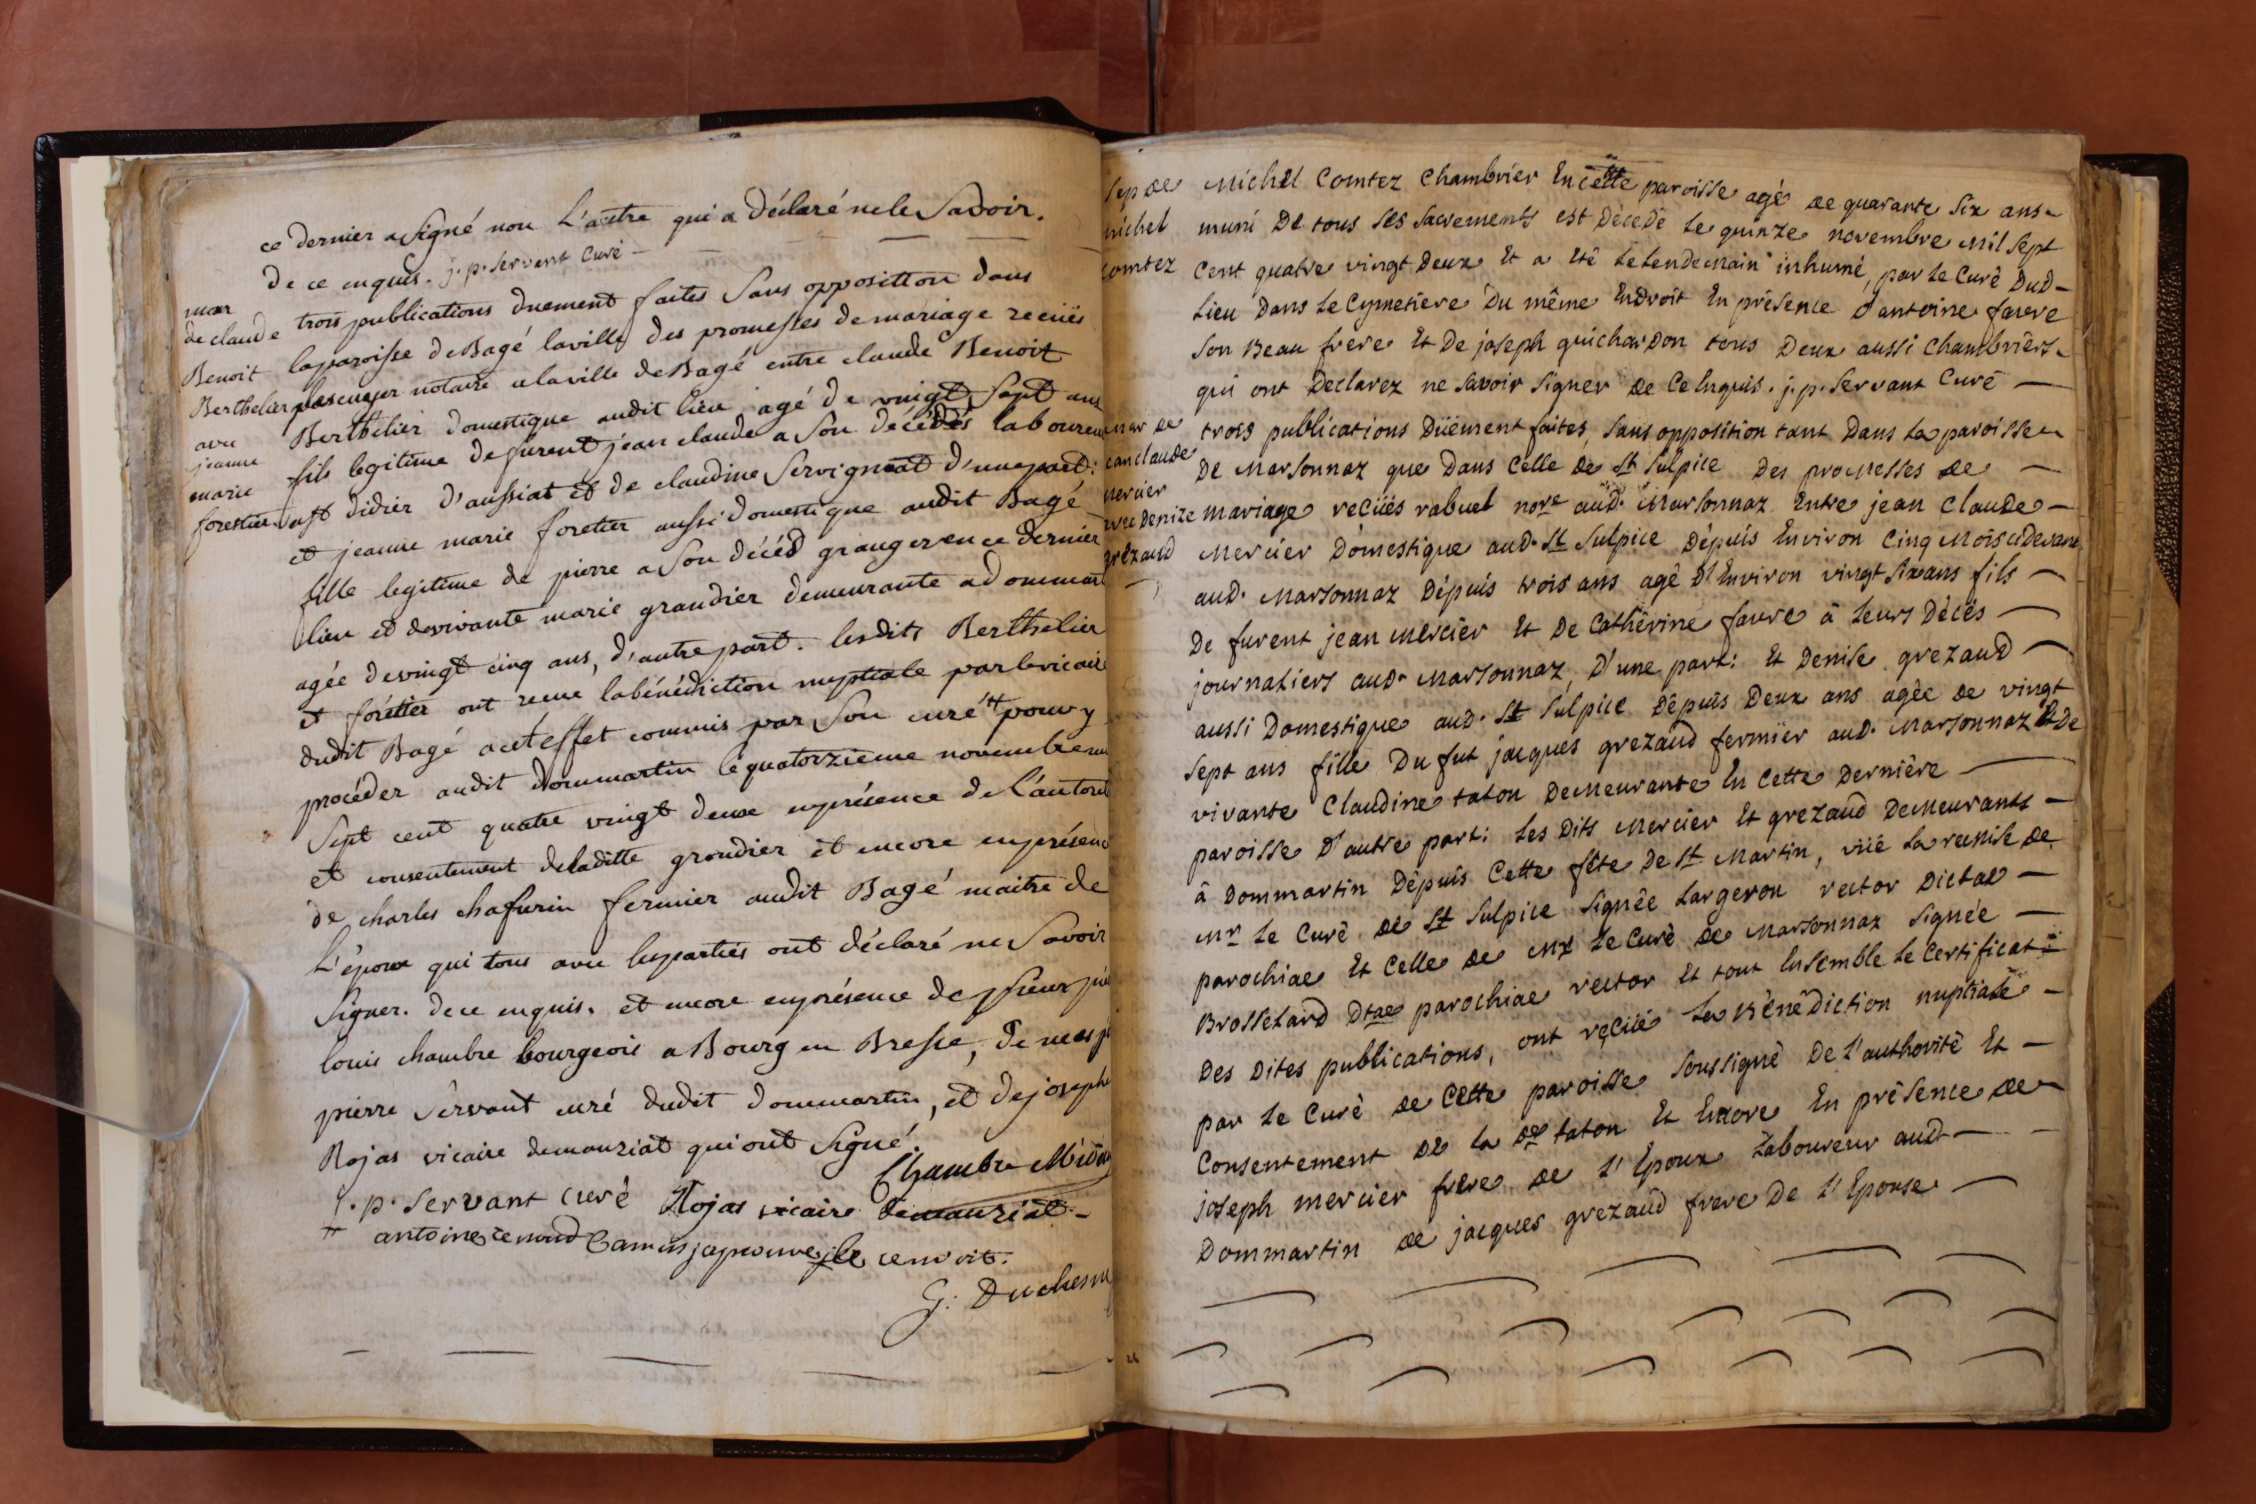 ce dernier a signé non L'autre qui a déclaré ne le Savoir.
De ce enquis. j. p. servant curé
mar
de claude
Benoit
Berthelier
avec
jeanne
marie
foretier
trois publications duement faites Sans opposition dans
laparoisse de Bagé laville des promesses de mariage reçuës
notaire a laville de Bagé entre claude Benoit
Berthelier domestique audit lieu agé de vingt sept ans
fils legitime de furent jean claude a Son décédés laboureur
a st didier d'aussiat et de claudine Servignat d'une part;
et jeanne marie foretier aussi domestique audit Bagé
fille legitime de pierre a Son décéd granger en ce dernier
lieu et de vivante marie grandier demeurante a dommart
agée de vingt cinq ans, d'autre part. lesdits Berthelier
et forétier ont reçue la bénédiction nuptiale par le vicaire
dudit Bagé a cet effet commis par Son curé ++ pour y
procéder audit dommartin le quatorzieme novembre
Sept cent quatre vingt deux en présence de l'autorit
et consentement de laditte grandier et encore en présenc
de charles chafurin fermier audit Bagé maitre de
L'époux qui tous avec les parties ont déclaré ne Savoir
Signer. de ce enquis. et encore en présence de sieur
louis chambre bourgeois a Bourg en Bresse, de
pierre Servant curé dudit dommartin, et de joseph
Rojas vicaire de manziat qui ont Signé.
Chambre
j. p. servant curé Rojas vicaire de manziat
G. Duchesne
Sep de
michel
comtez
Michel Comtez Chambrier En cette paroisse agé de quarante six ans
muni De tous ses sacrements est Décedé le quinze novembre mil sept
Cent quatre vingt Deux Et a Eté le lendemain inhumé, par le Curé Dud
Lieu Dans le Cymetiere Du même Endroit En présence D'antoine faure
Son Beau frere Et De joseph guichardon tous Deux aussi Chambriers
qui ont Declarez ne savoir signer de Ce Enquis. j. p. servant Curé
mar de
jean claude
mercier
avec Denize
grezaud
trois publications Düement faites, sans opposition tant Dans la paroisse
De Marsonnaz que Dans Celle de St Sulpice Des promesses de
mariage reçüës rabuel nore aud. Marsonnaz Entre jean Claude
Mercier Domestique aud. St Sulpice Dépuis Environ Cinq Mois cidevant
aud. Marsonnaz Dépuis trois ans agé D'Environ vingt six ans fils
De furent jean Mercier Et De Cathérine faure à leurs Décés
journaliers aud. Marsonnaz, D'une part: Et Denise grezaud
aussi Domestique aud. St Sulpice Dépuis Deux ans agée de vingt
Sept ans fille Du fut jacques grezaud fermier aud. Marsonnaz Et De
vivante Claudine taton Demeurante En Cette Dernière
paroisse D'autre part: les Dits Mercier Et grezaud Demeurants
à Dommartin Dépuis Cette fête De St Martin, vüe la remise de
Mr le Curé de St Sulpice signée Largeron rector Dictae
parochiae Et Celle de Mr le Curé de Marsonnaz signée
Brosselard Dtae parochiae rector Et tout Ensemble le Certificat
Des Dites publications, ont reçüe la Bénédiction nuptiale
par le Curé de Cette paroisse soussigné De l'authorité Et
Consentement De la de taton Et Encore En présence de
joseph mercier frere de l'Epoux laboureur aud
Dommartin de jacques grezaud frere De l'Epouse